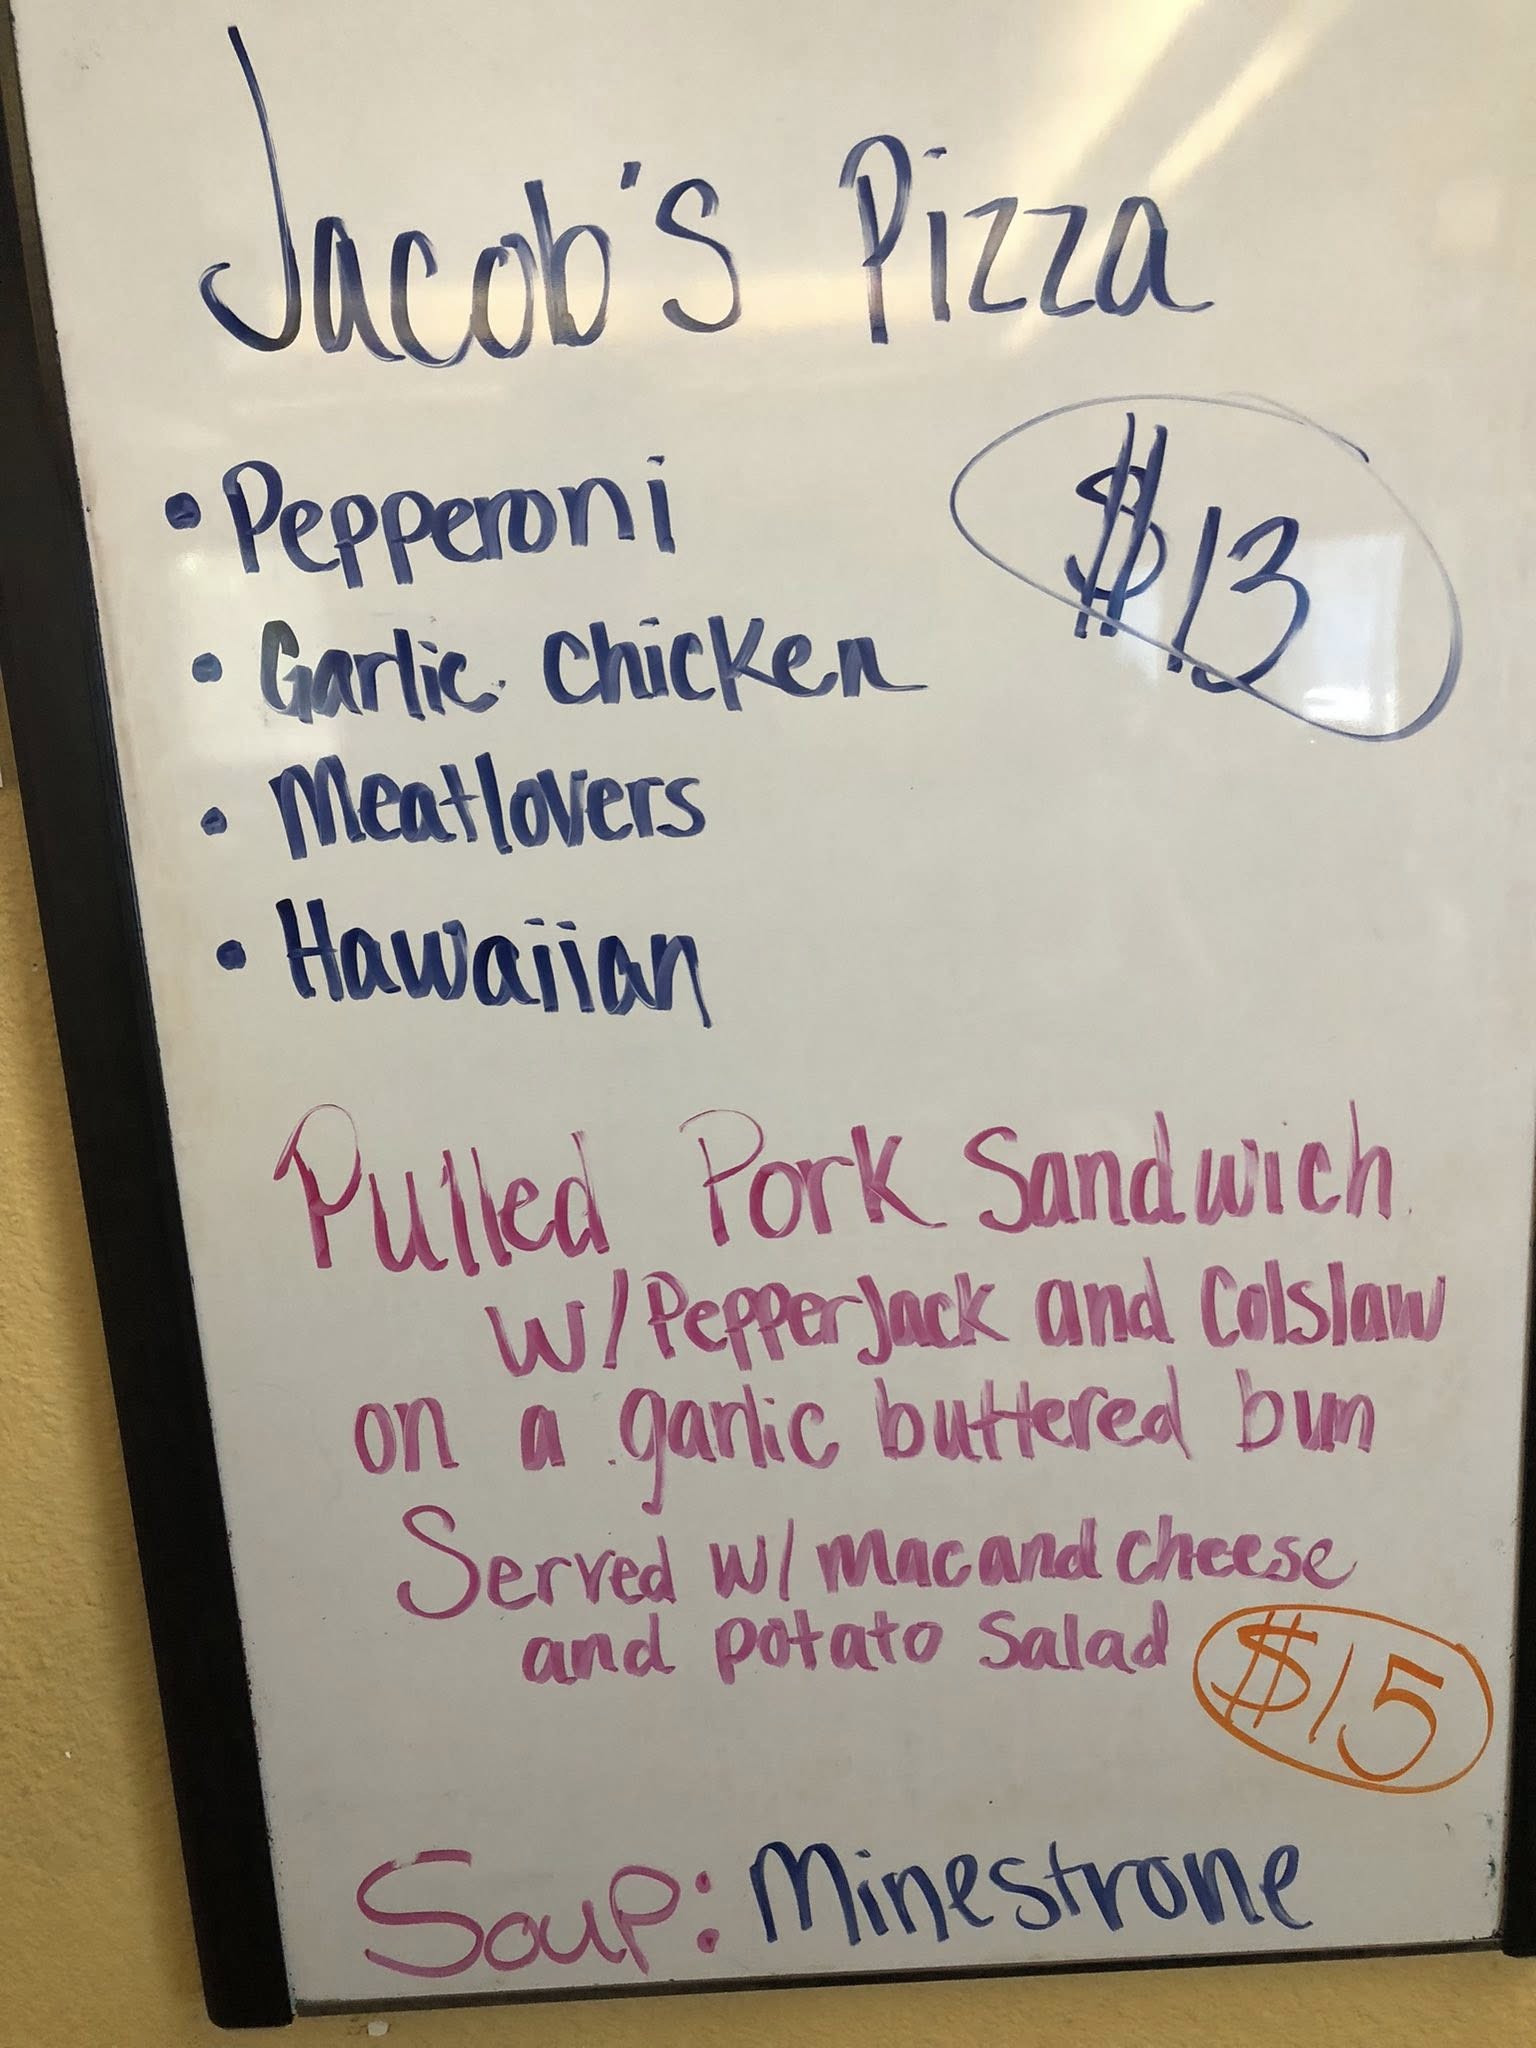 Jacob's Pizza
• Pepperoni
$13
• Garlic Chicken
• Meatlovers
• Hawaiian
Pulled Pork Sandwich
w/ Pepperjack and Colslaw
on a garlic buttered bun
Served w/ mac and cheese
and potato Salad
$15
Soup: Minestrone